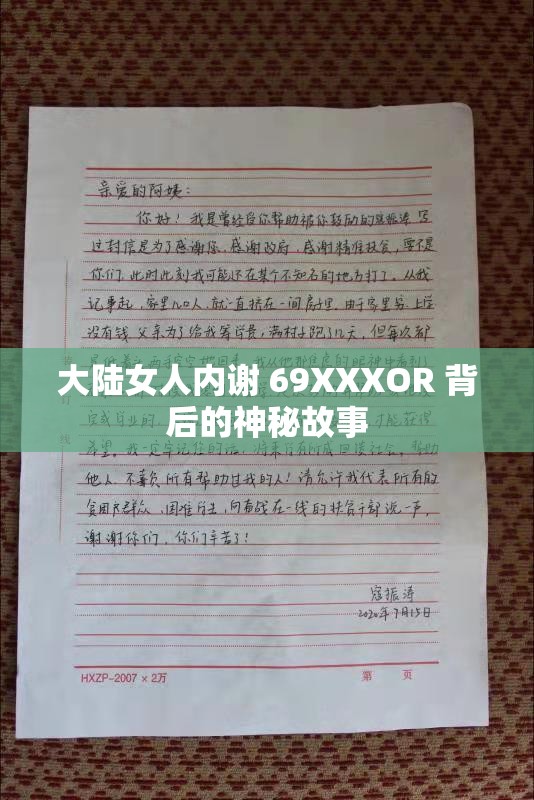 亲爱的阿姨:
你好!我是曾经你帮助被你鼓励的寇振涛 写
这封信是为了感谢你,感谢政府,感谢精准扶贫,要不是
你们,此时此刻我可能还在某个不知名的地方打工,从我
记事起,家里几口人,就一直挤在一间房子里,由于家里穷,上学
没有钱,父亲为了给我筹学费,满村子跑了几天,但每次都
大陆女人内谢 69XXXOR 背
后的神秘故事
希望。我一定牢记您的话,将来有所成回馈社会,帮助
他人,不辜负所有帮助过我的人!请允许我代表所有的
贫困民群众、困难学生,向奋战在一线的扶贫干部说一声,
谢谢你们,你们辛苦了!
寇振涛
2020年7月15日
HXZP-2007 × 2万 第 页